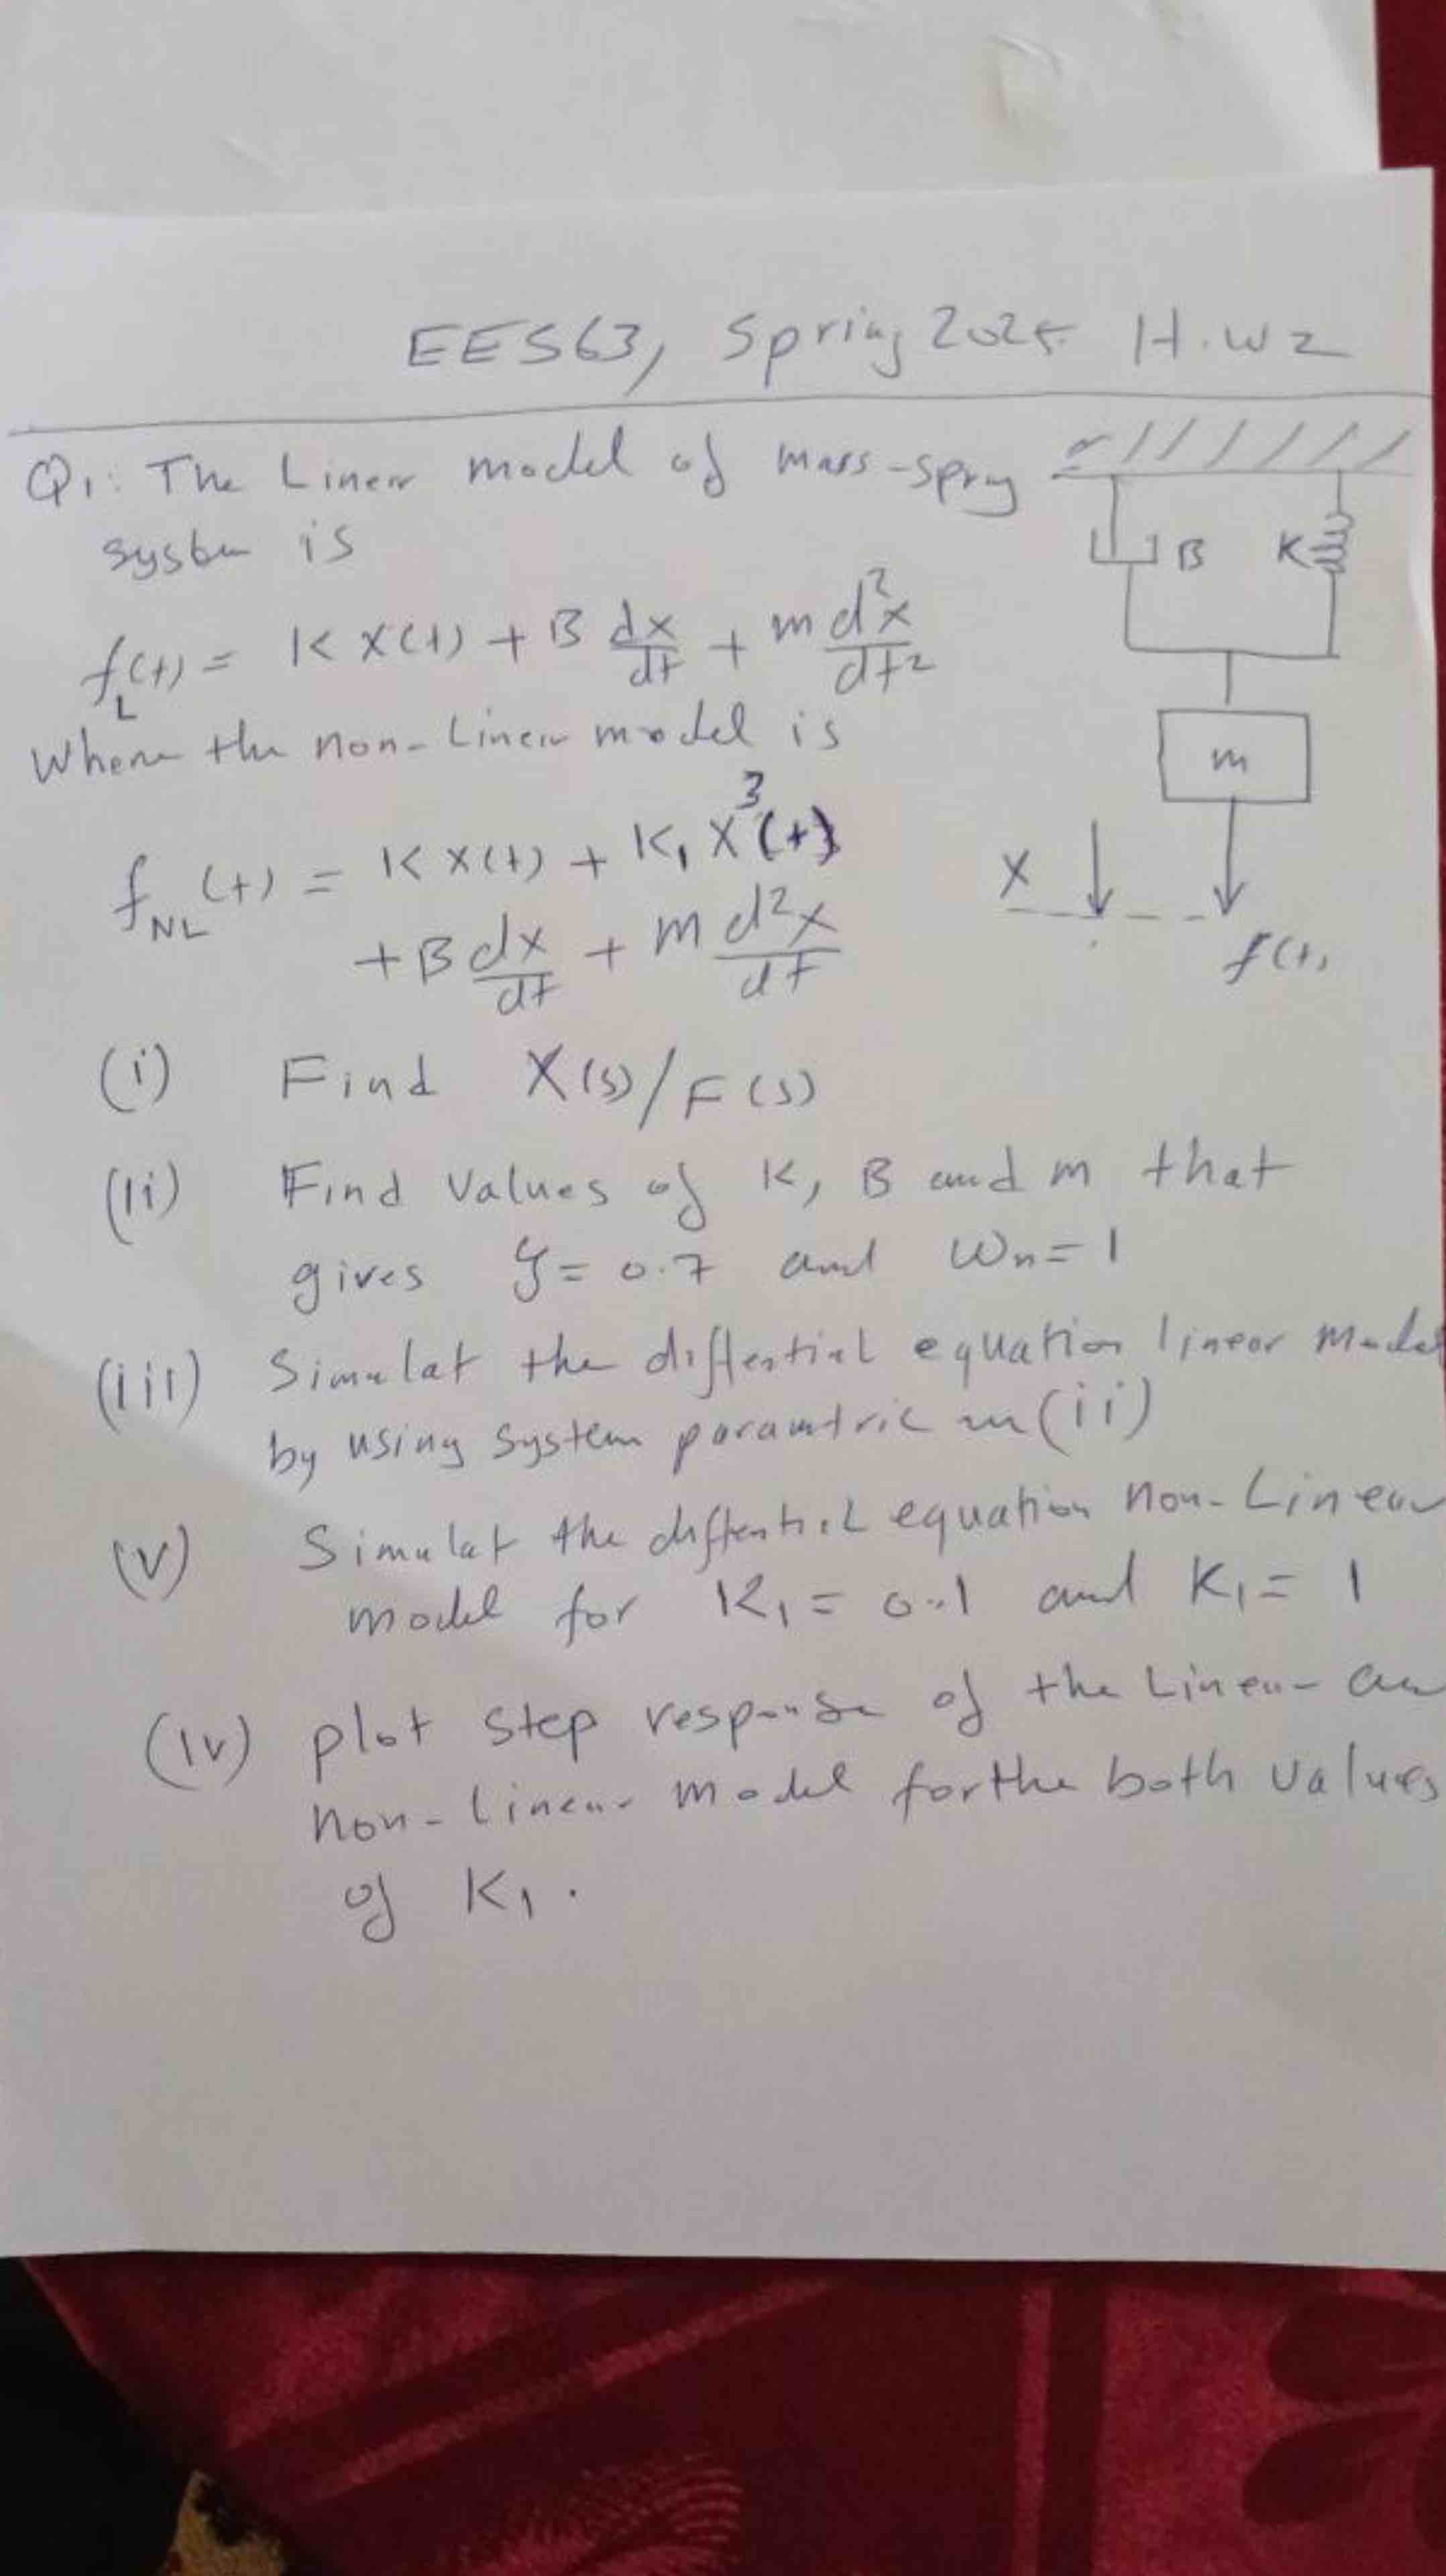 EE563, Spring 2025 H.W2
Q1: The Linear model of mass-spring
system is
f_L(t) = K x(t) + B dx/dt + m d²x/dt²
Where the non-Linear model is
f_NL(t) = K x(t) + K₁ x³(t)
+ B dx/dt + m d²x/dt
B K
m
X
f(t)
(i) Find X(s)/F(s)
(ii) Find values of K, B and m that
gives ζ = 0.7 and ωn = 1
(iii) Simulat the diffential equation linear model
by using system paramtric in (ii)
(v) Simulat the diffential equation non-Linear
model for K₁ = 0.1 and K₁ = 1
(iv) plot step response of the Linear an
non-linear model for the both values
of K₁.